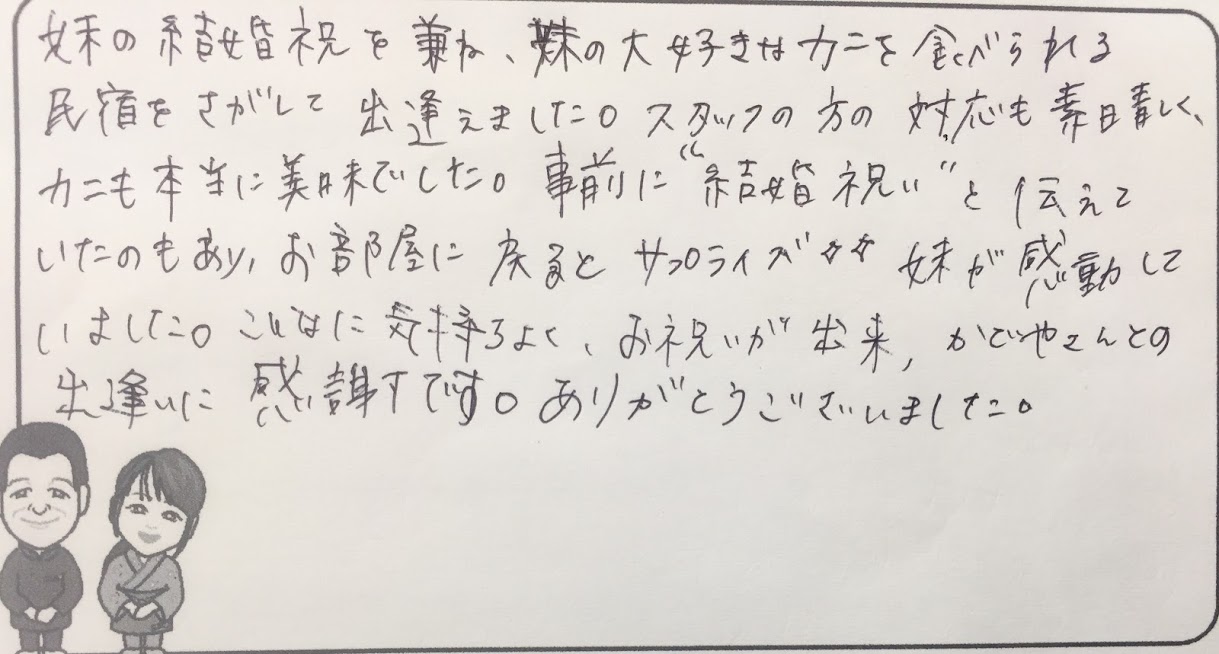 妹の結婚祝を兼ね、妹の大好きなカニを食べられる
民宿をさがして出逢えました。スタッフの方の対応も素晴しく、
カニも本当に美味でした。事前に“結婚祝い”と伝えて
いたのもあり、お部屋に戻るとサプライズ☆☆妹が感動して
いました。こんなに気持ちよく、お祝いが出来、かどやさんとの
出逢いに感謝です。ありがとうございました。